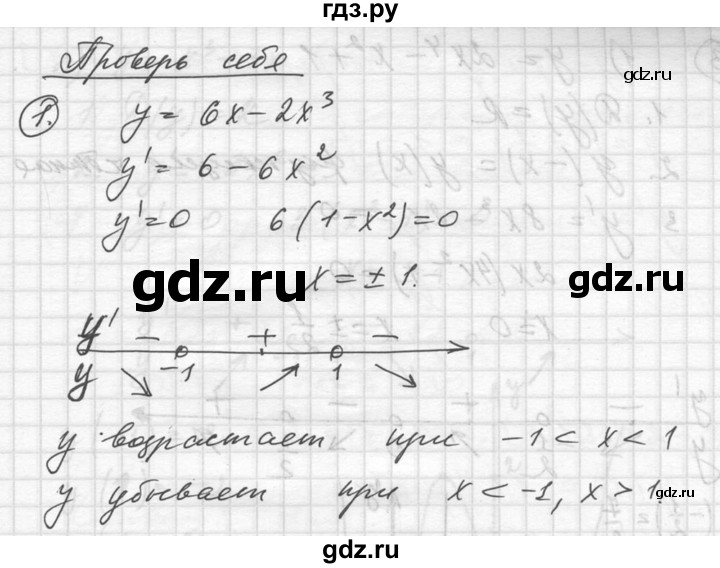 гдз.ру
Проверь себя
gdz.ru
1. y = 6x - 2x³
y' = 6 - 6x²
y' = 0 6(1 - x²) = 0
gdz.ru gdz.ru
x = ± 1.
y' − + −
y -1 1
gdz.ru
y возрастает при -1 < x < 1
y убывает при x < -1, x > 1.
gdz.ru
gdz.ru